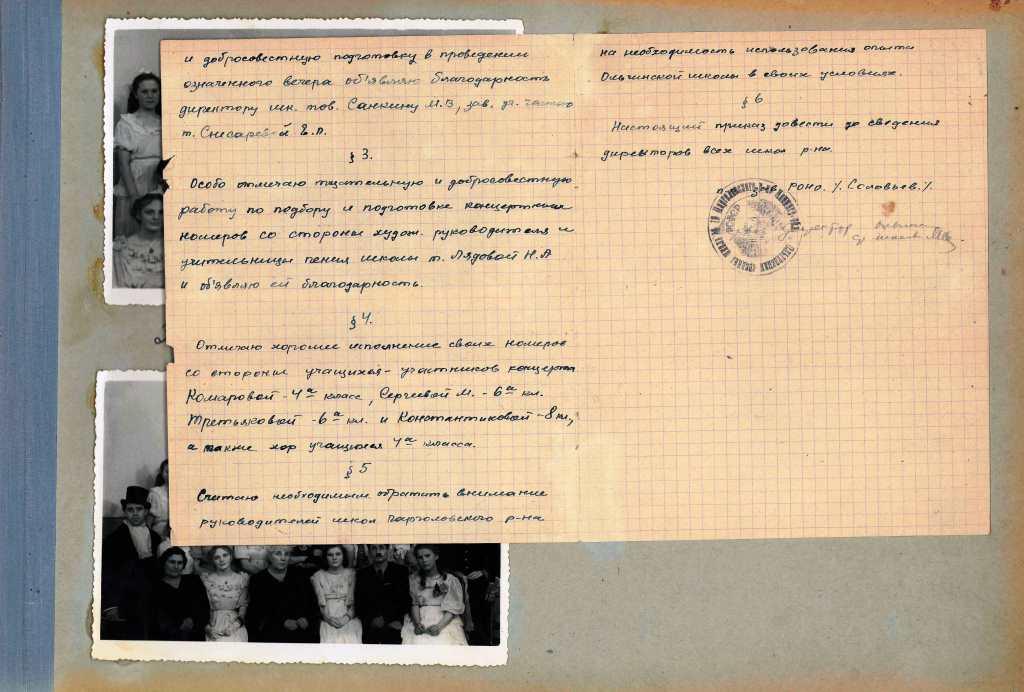 и добросовестную подготовку в проведении
означенного вечера об'являю благодарность
директору шк. тов. Санкину М.В, зав. уч. частью
т. Снесаревой Е.П.
§ 3.
Особо отмечаю тщательную и добросовестную
работу по подбору и подготовке концертных
номеров со стороны худож. руководителя и
учительницы пения школы т. Лядовой Н.А
и об'являю ей благодарность.
§ 4.
Отмечаю хорошее исполнение своих номеров
со стороны учащихся - участников концерта
Комаровой - 4ª класс, Сергеевой М. - 6ª кл.
Третьяковой - 6ª кл. и Константиновой - 8 кл,
а также хор учащихся 4ª класса.
§ 5
Считаю необходимым обратить внимание
руководителей школ Парголовского р-на
на необходимость использования опыта
Ольгинской школы в своих условиях.
§ 6
Настоящий приказ довести до сведения
директоров всех школ р-на.
РОНО. /. Соловьев. /.